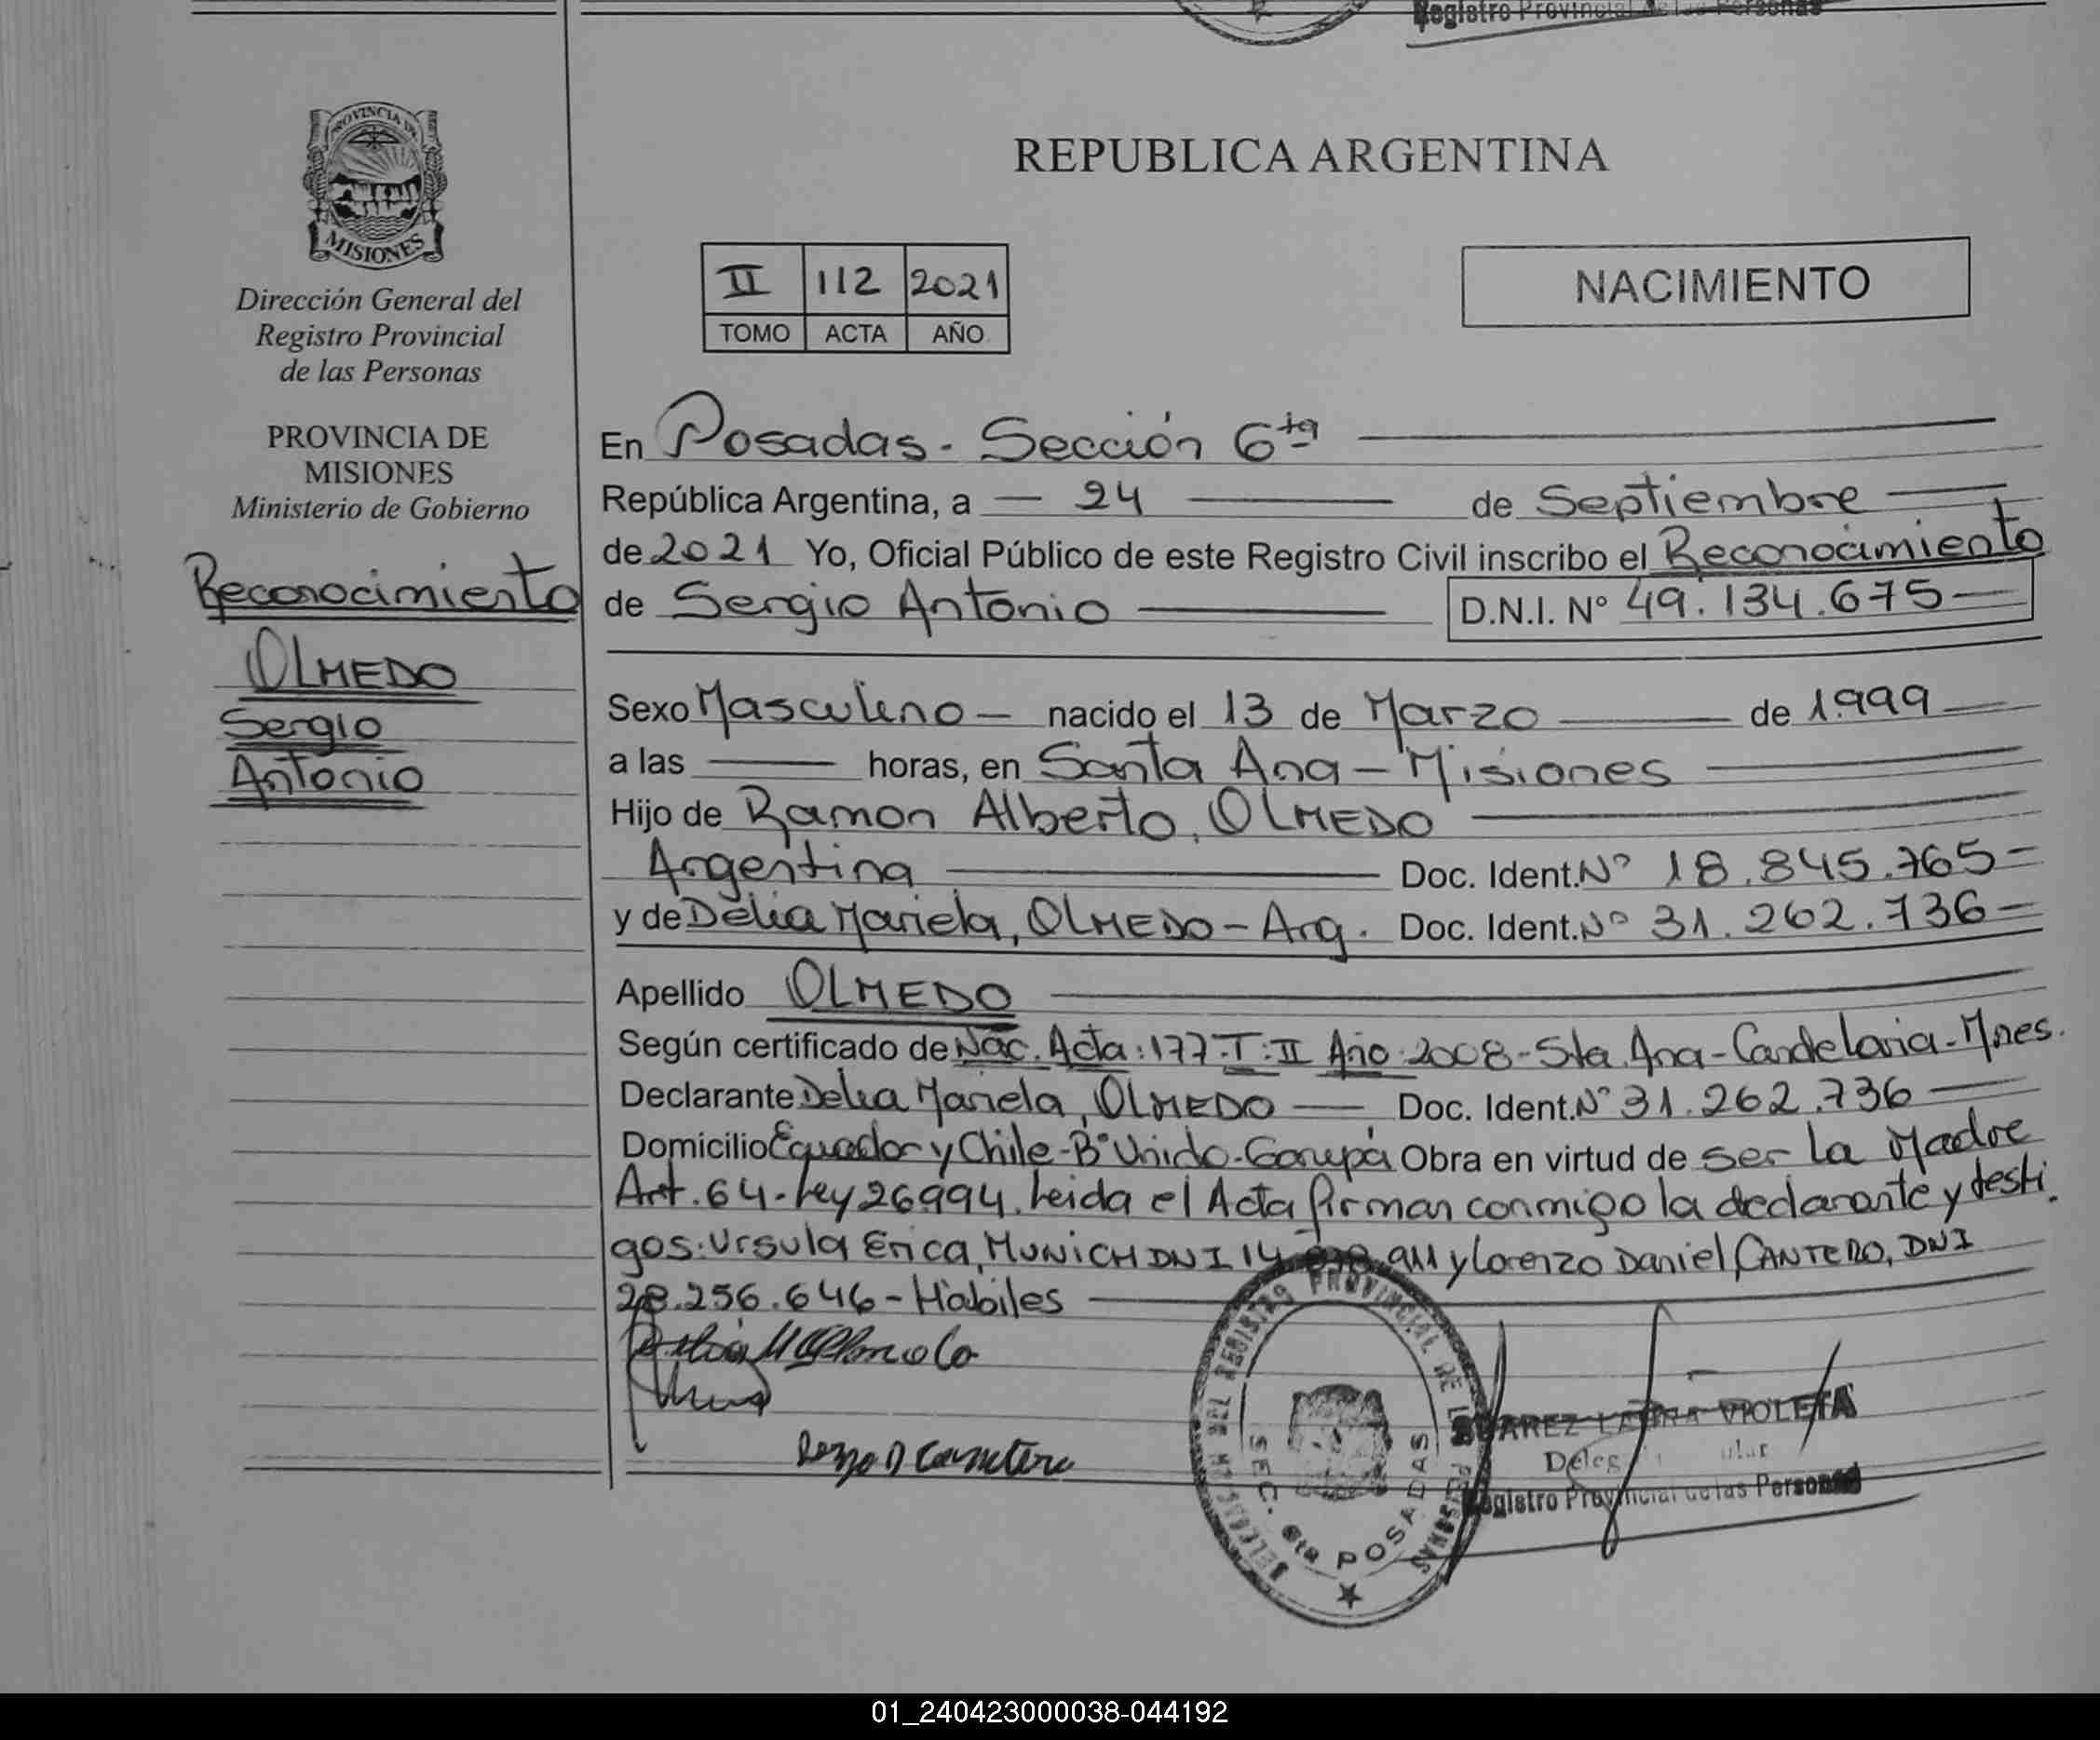 Registro Provincial de las Personas
PROVINCIA DE
MISIONES
Dirección General del
Registro Provincial
de las Personas
PROVINCIA DE
MISIONES
Ministerio de Gobierno
Reconocimiento
OLMEDO
Sergio
Antonio
REPUBLICA ARGENTINA
II 112 2021
TOMO ACTA AÑO
NACIMIENTO
En Posadas - Sección 6ta
República Argentina, a — 24 — de Septiembre
de 2021 Yo, Oficial Público de este Registro Civil inscribo el Reconocimiento
de Sergio Antonio — D.N.I. N° 49.134.675 —
Sexo Masculino — nacido el 13 de Marzo — de 1.999 —
a las — horas, en Santa Ana - Misiones —
Hijo de Ramon Alberto, OLMEDO —
Argentina — Doc. Ident. N° 18.845.765 =
y de Delia Mariela, OLMEDO - Arg. Doc. Ident. N° 31.262.736 =
Apellido OLMEDO —
Según certificado de Nac. Acta: 177. T: II Año 2008 - Sta. Ana - Candelaria - Mnes.
Declarante Delia Mariela, OLMEDO — Doc. Ident. N° 31.262.736 —
Domicilio Equador y Chile - B° Unido - Garupá Obra en virtud de ser la Madre
Art. 64 - Ley 26994. Leida el Acta firman conmigo la declarante y testi
gos: Ursula Erica, MUNICH DNI 14. 911 y Lorenzo Daniel, CANTERO, DNI
28.256.646 - Hábiles —
DELEGACION DEL REGISTRO PROVINCIAL DE LAS PERSONAS
SEC. 6ta POSADAS
SUAREZ LAURA VIOLETA
Registro Provincial de las Personas
01_240423000038-044192